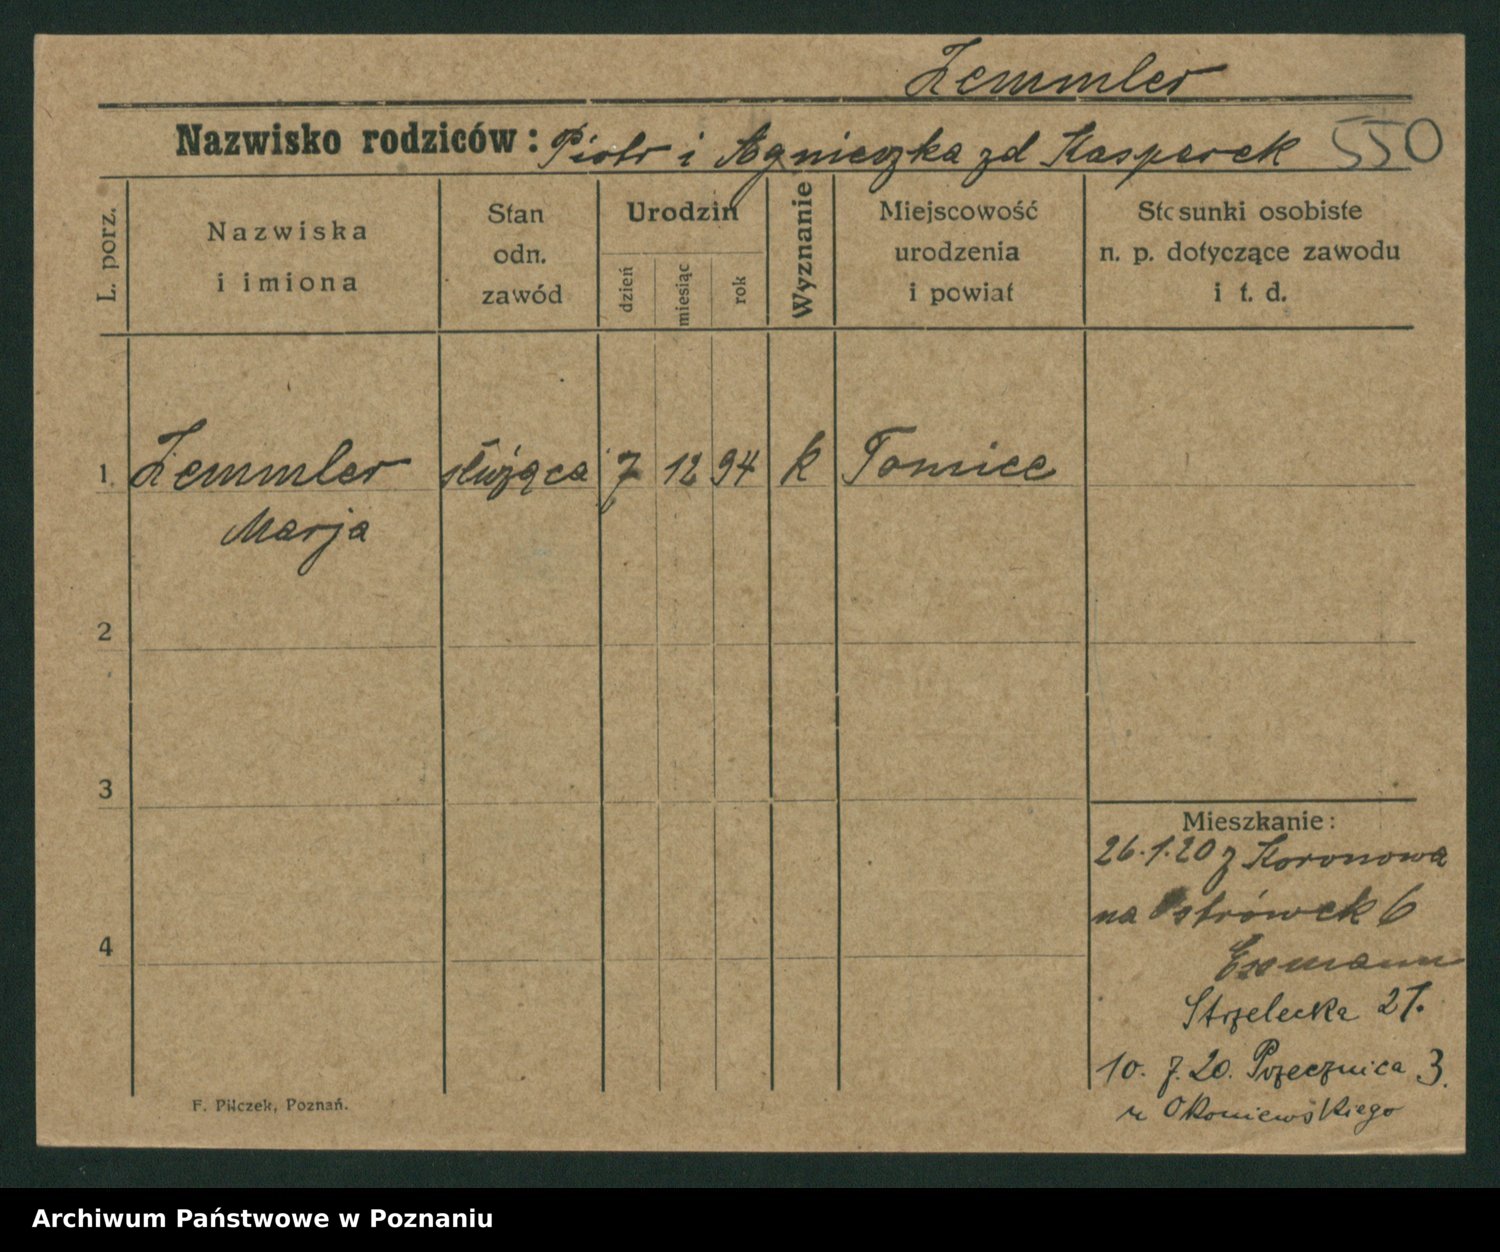 Zemmler
Nazwisko rodziców: Piotr i Agnieszka zd Kasperek 550
L. porz.
Nazwiska
i imiona
Stan
odn.
zawód
Urodzin
dzień
miesiąc
rok
Wyznanie
Miejscowość
urodzenia
i powiat
Stosunki osobiste
n. p. dotyczące zawodu
i t. d.
1 Zemmler służąca 7 12 94 k Tomice
Marja
2
3
4
Mieszkanie:
26.1.20 z Koronowa
na Ostrówek 6
Strzelecka 27.
10. 7. 20. Przecznica 3.
u Okoniewskiego
F. Pilczek, Poznań.
Archiwum Państwowe w Poznaniu